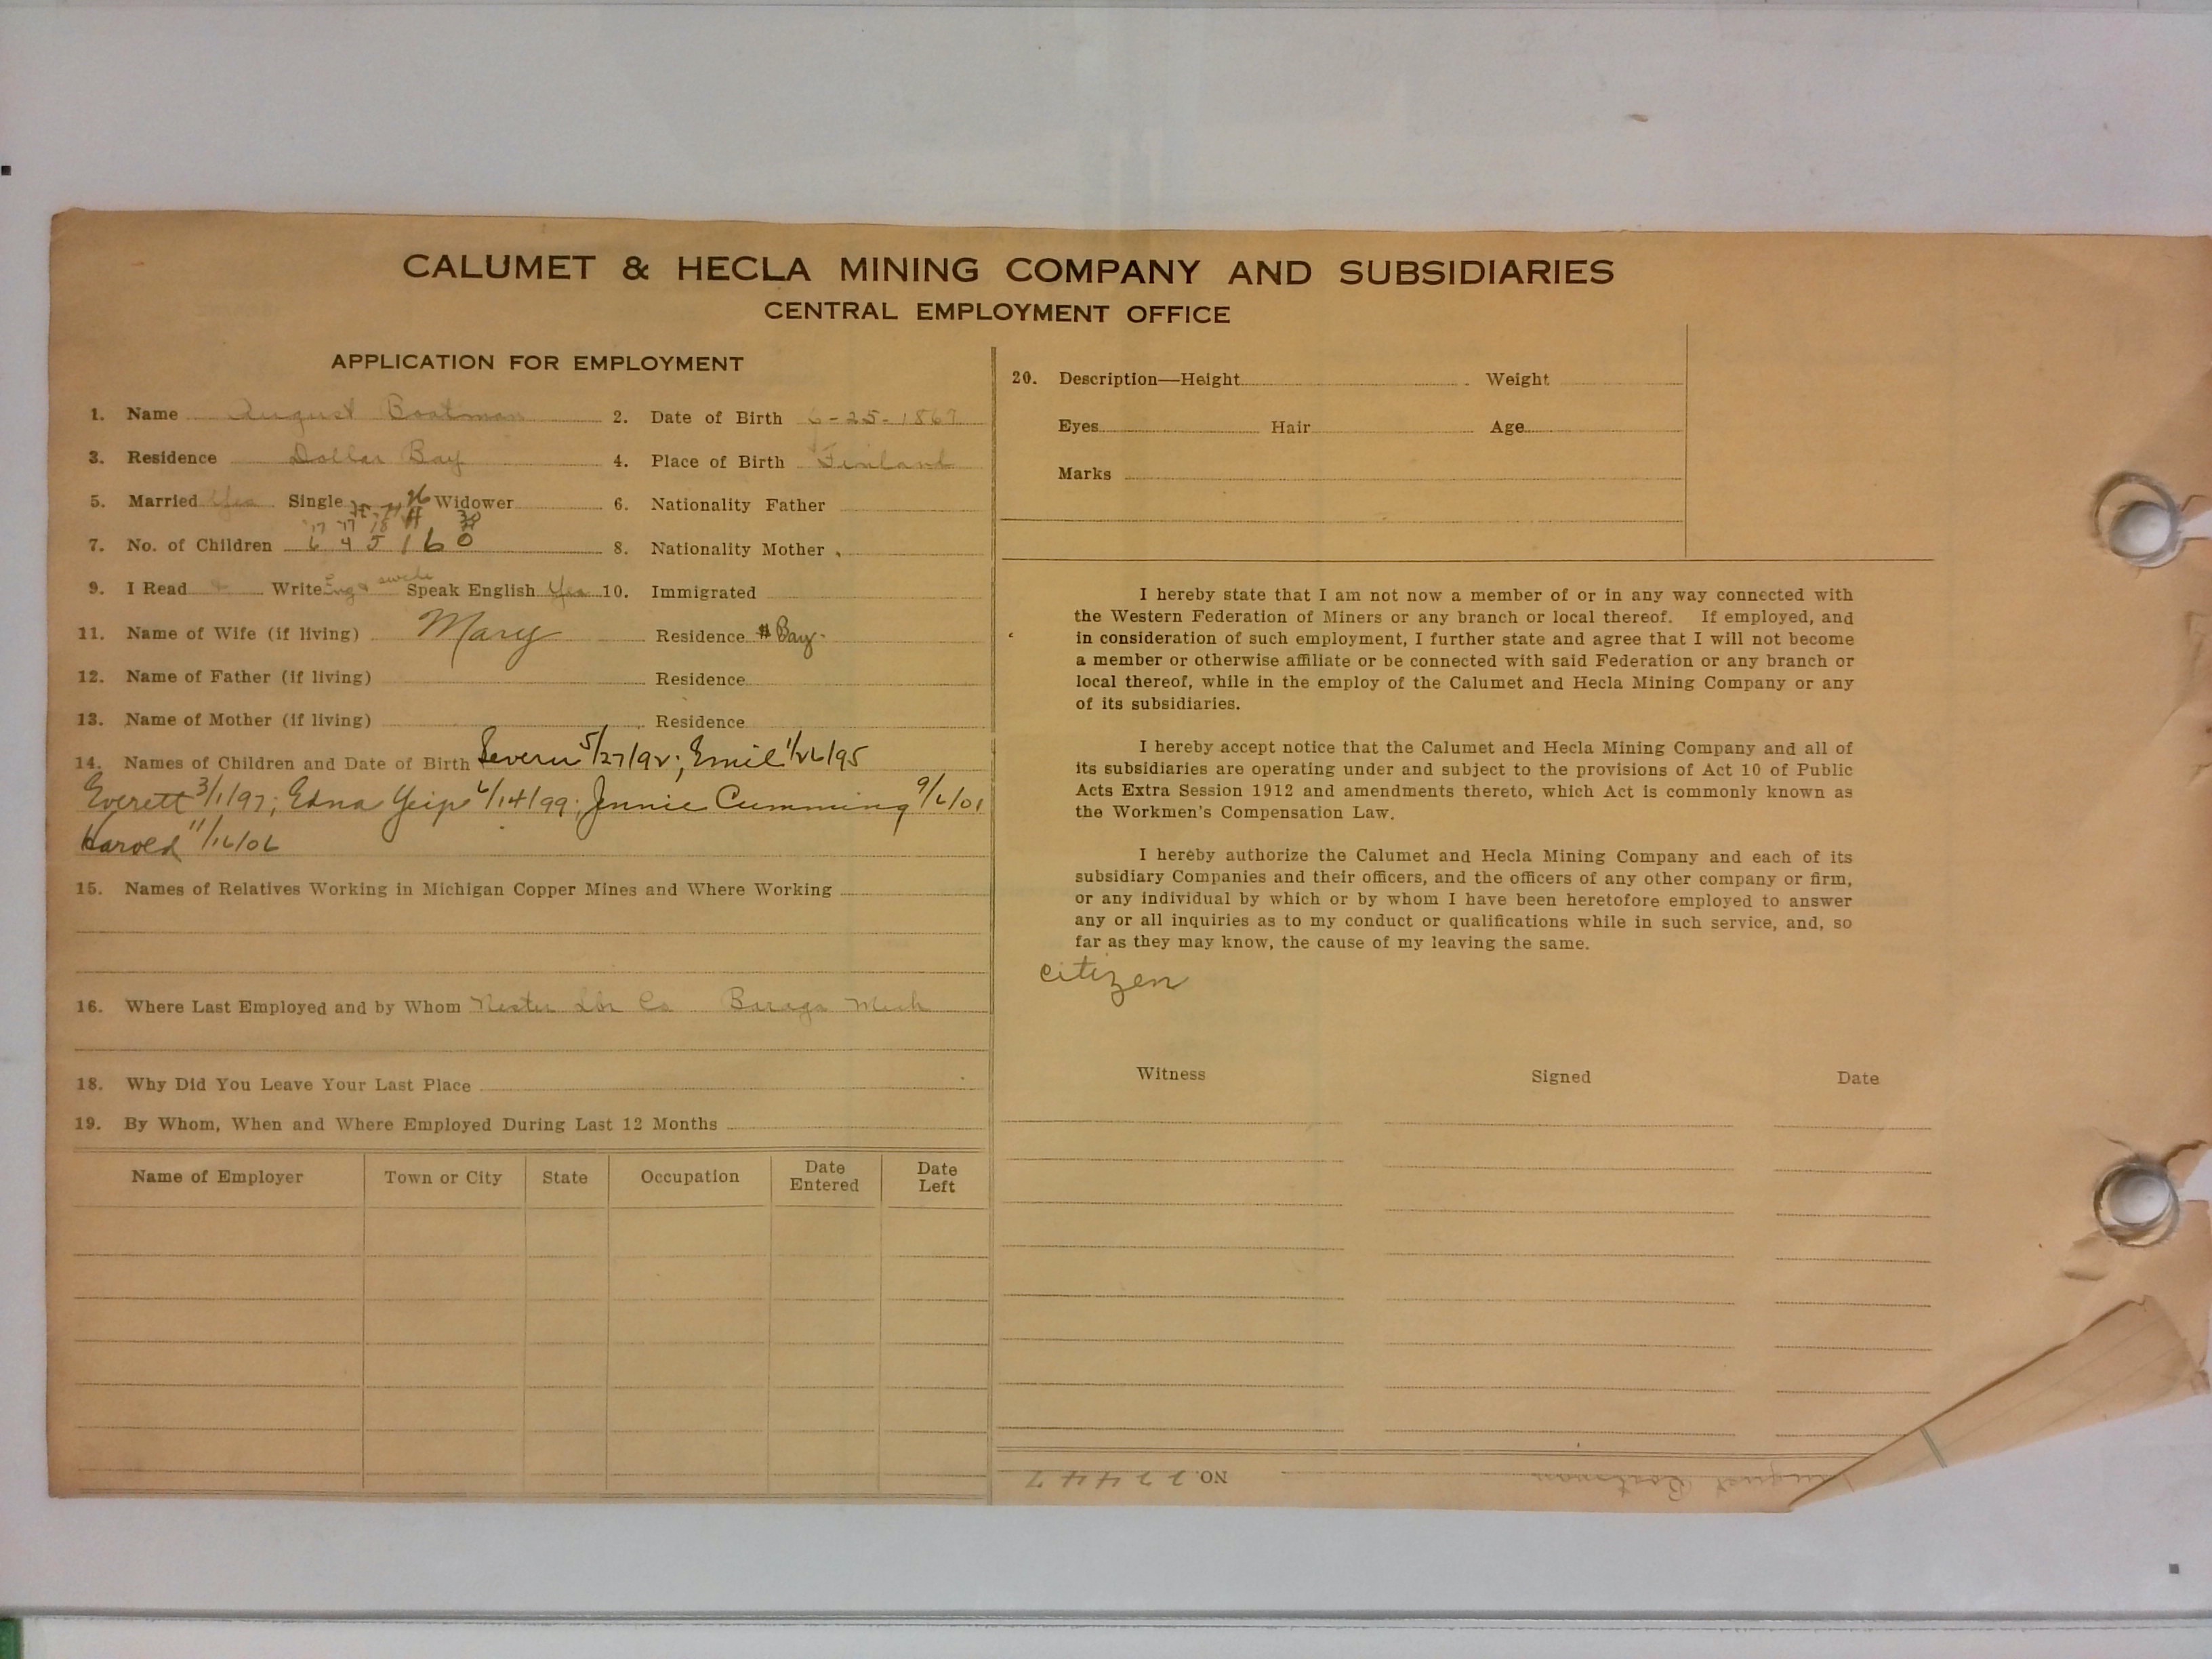 CALUMET & HECLA MINING COMPANY AND SUBSIDIARIES
CENTRAL EMPLOYMENT OFFICE
APPLICATION FOR EMPLOYMENT
1. Name August Boatman 2. Date of Birth 6-25-1867
3. Residence Dollar Bay 4. Place of Birth Finland
5. Married Yes Single Widower 6. Nationality Father
'17 '17 18
7. No. of Children 6 4 5 1 6 0 8. Nationality Mother
9. I Read Write Eng & swede Speak English Yes 10. Immigrated
11. Name of Wife (if living) Mary Residence $ Bay
12. Name of Father (if living) Residence
13. Name of Mother (if living) Residence
14. Names of Children and Date of Birth Severn 5/27/92; Emil 1/26/95
Everett 3/1/97; Edna Yeip 6/14/99; Jennie Cumming 9/6/01
Harold 11/16/06
15. Names of Relatives Working in Michigan Copper Mines and Where Working
16. Where Last Employed and by Whom Nester Lbr Co Baraga Mich
18. Why Did You Leave Your Last Place
19. By Whom, When and Where Employed During Last 12 Months
Name of Employer Town or City State Occupation Date Entered Date Left
20. Description—Height Weight
Eyes Hair Age
Marks
I hereby state that I am not now a member of or in any way connected with
the Western Federation of Miners or any branch or local thereof. If employed, and
in consideration of such employment, I further state and agree that I will not become
a member or otherwise affiliate or be connected with said Federation or any branch or
local thereof, while in the employ of the Calumet and Hecla Mining Company or any
of its subsidiaries.
I hereby accept notice that the Calumet and Hecla Mining Company and all of
its subsidiaries are operating under and subject to the provisions of Act 10 of Public
Acts Extra Session 1912 and amendments thereto, which Act is commonly known as
the Workmen's Compensation Law.
I hereby authorize the Calumet and Hecla Mining Company and each of its
subsidiary Companies and their officers, and the officers of any other company or firm,
or any individual by which or by whom I have been heretofore employed to answer
any or all inquiries as to my conduct or qualifications while in such service, and, so
far as they may know, the cause of my leaving the same.
citizen
Witness Signed Date
August Boatman NO. 22447